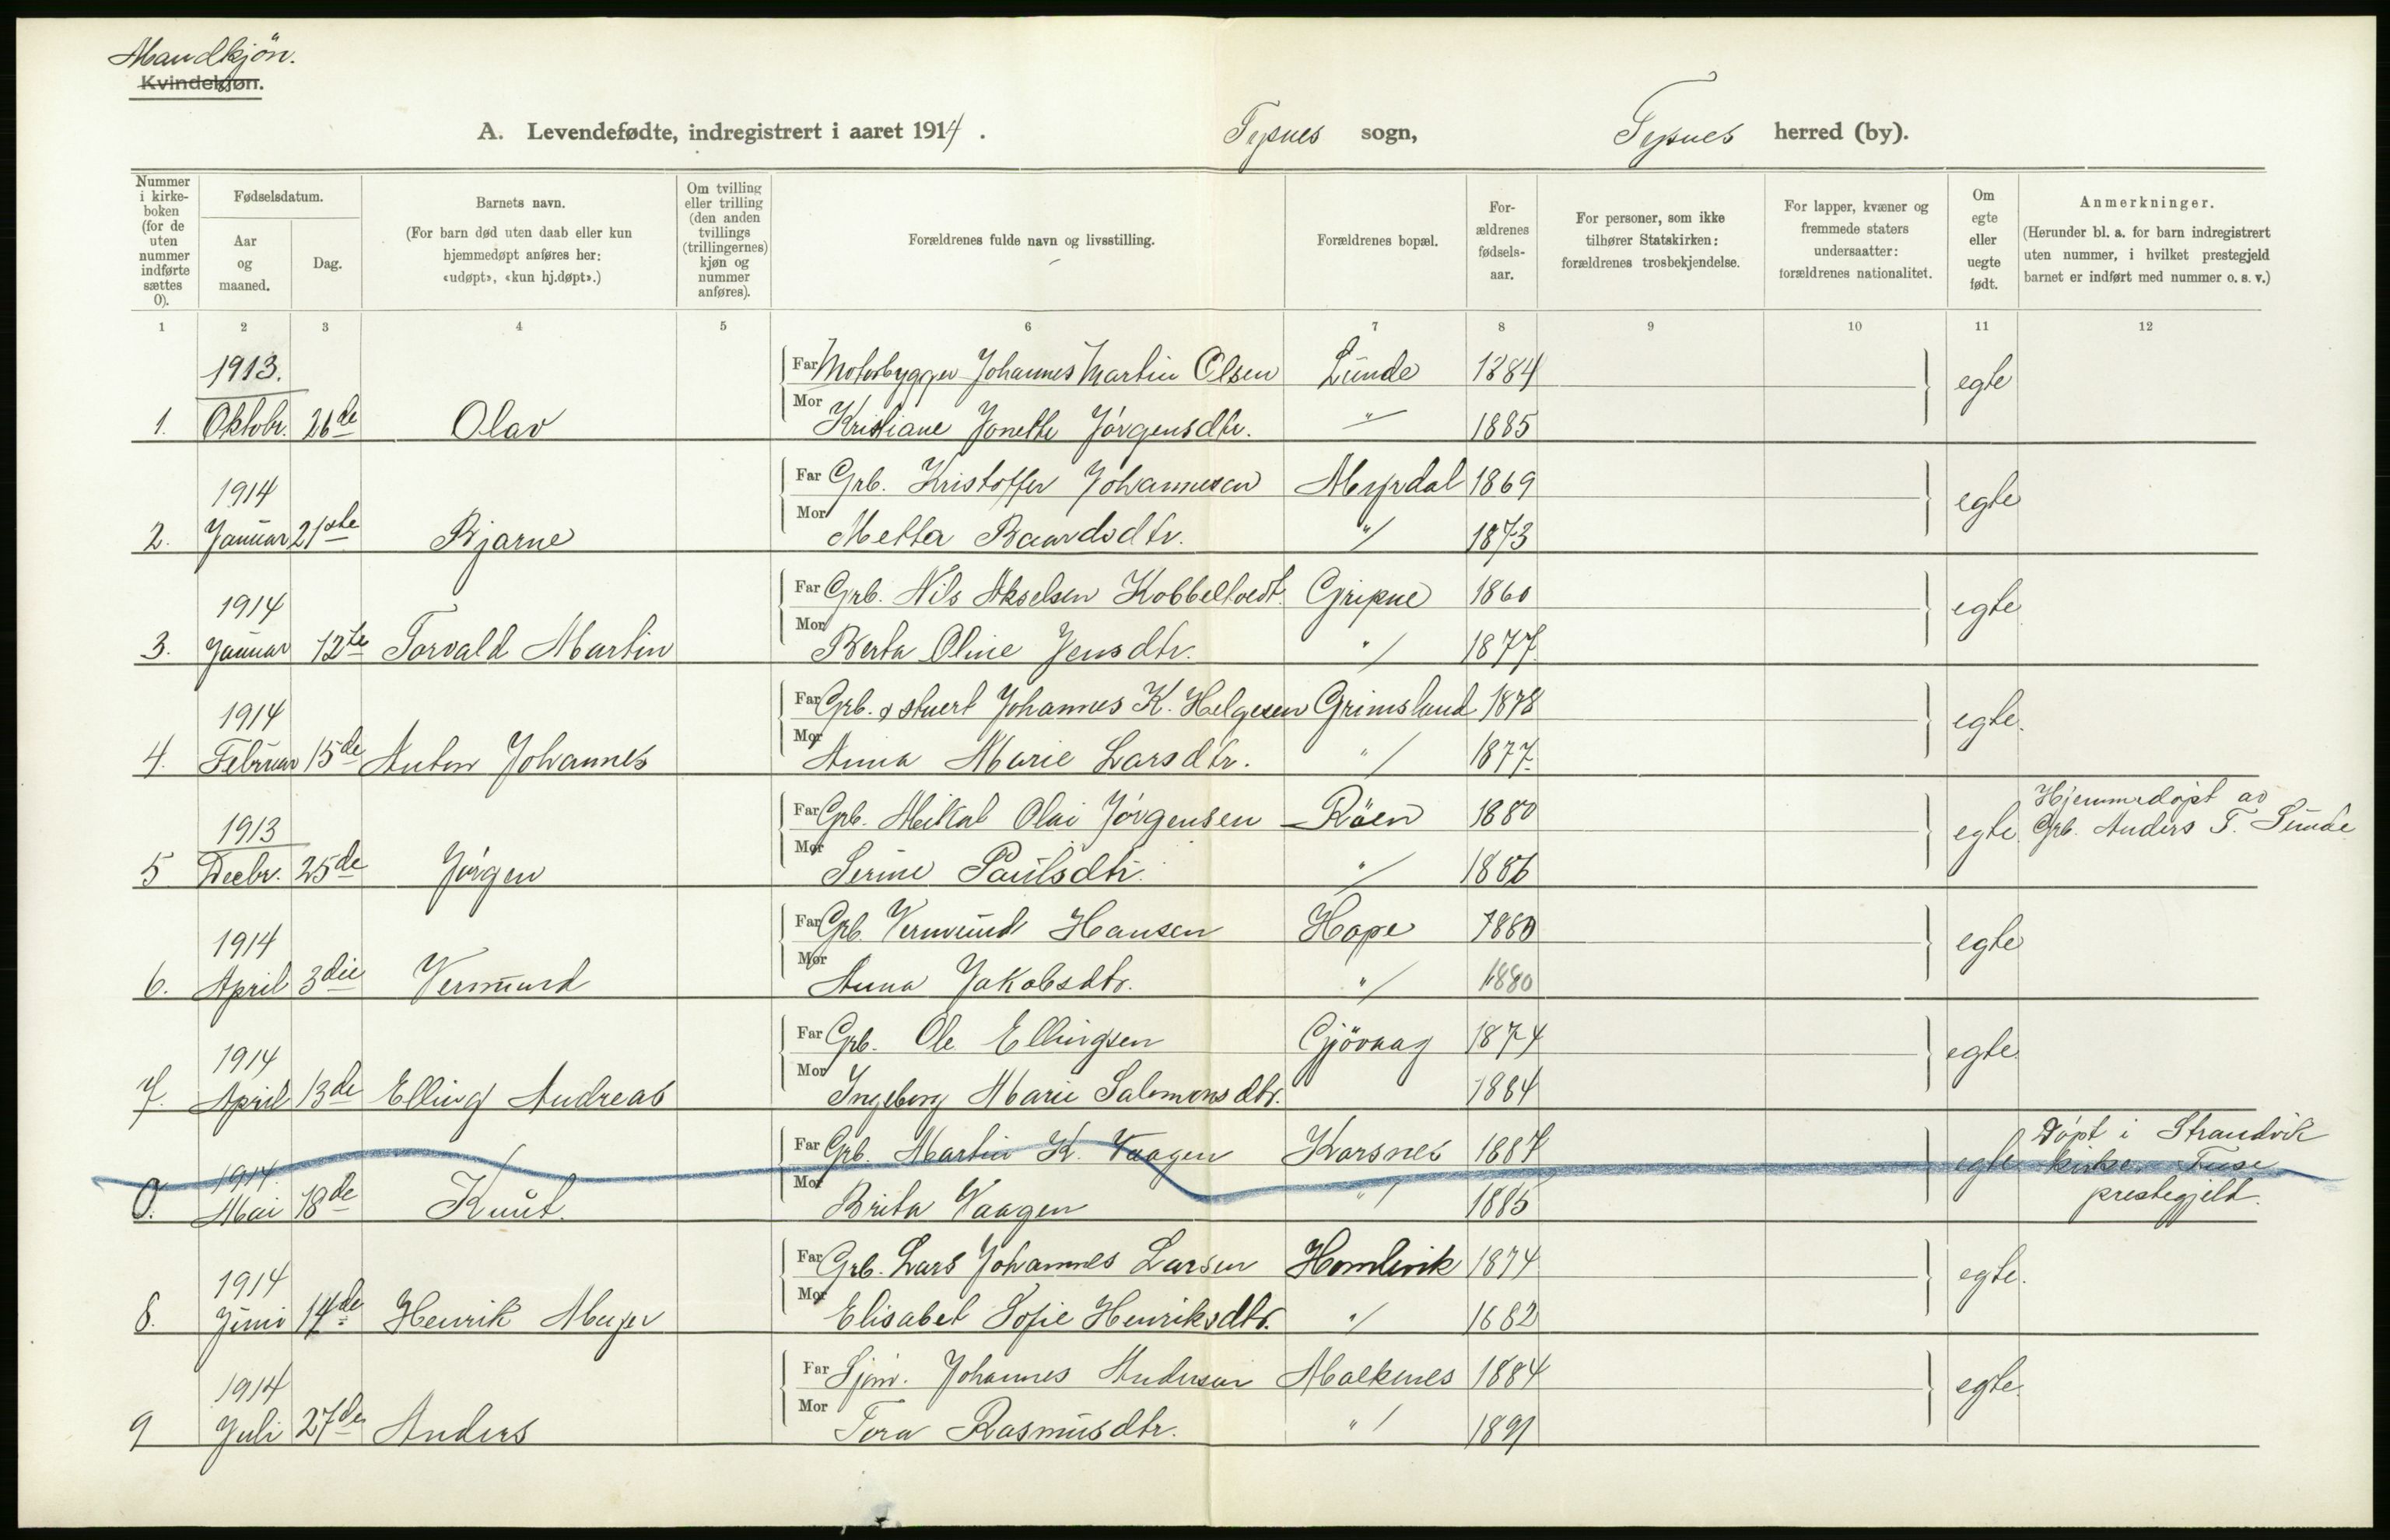 Mandkjön.
Kvindekjøn.
A. Levendefødte, indregistrert i aaret 1914. Tysnes sogn, Tysnes herred (by).
Nummer i kirkeboken (for de uten nummer indførte sættes 0).
Fødselsdatum.
Aar og maaned.
Dag.
Barnets navn.
(For barn død uten daab eller kun hjemmedøpt anføres her: «udøpt», «kun hj.døpt».)
Om tvilling eller trilling (den anden tvillings (trillingernes) kjøn og nummer anføres).
Forældrenes fulde navn og livsstilling.
Forældrenes bopæl.
Forældrenes fødselsaar.
For personer, som ikke tilhører Statskirken: forældrenes trosbekjendelse.
For lapper, kvæner og fremmede staters undersaatter: forældrenes nationalitet.
Om egte eller uegte født.
Anmerkninger.
(Herunder bl. a. for barn indregistrert uten nummer, i hvilket prestegjeld barnet er indført med nummer o. s. v.)
1 2 3 4 5 6 7 8 9 10 11 12
1913. Far Motorbygger Johannes Martin Olsen Lunde 1884 egte
1. Oktobr. 26de Olav Mor Kristiane Jonette Jörgensdtr. " 1885
1914 Far Grb. Kristoffer Johannesen Myrdal 1869 egte
2. Januar 21ste Bjarne Mor Metta Baardsdtr. " 1873
1914 Far Grb. Nils Akselsen Kobbeltvedt. Gripne 1860 egte
3. Januar 12te Torvald Martin Mor Berta Oline Jensdtr. " 1877
1914 Far Grb. & stuert Johannes K. Helgesen Grimsland 1878 egte.
4. Februar 15de Anton Johannes Mor Anna Marie Larsdtr. " 1877
1913 Far Grb. Mikal Olai Jörgensen Röen 1880 egte Hjemmedöpt av Grb. Anders T. Lunde
5 Decbr. 25de Jörgen Mor Serine Paulsdtr. " 1886
1914 Far Grb. Vermund Hansen Hope 1880 egte
6. April 3die Vermund Mor Anna Jakobsdtr. " 1880
1914 Far Grb. Ole Ellingsen Gjövaag 1874 egte.
7. April 13de Elling Andreas Mor Ingeborg Marie Salomonsdtr. 1884
1914. Far Grb. Martin K. Vaagen Korsnes 1887 egte Döpt i Strandvik kirke, Fuse prestegjeld.
0. Mai 18de Knut. Mor Brita Vaagen " 1885
1914 Far Grb. Lars Johannes Larsen Homlevik 1874 egte.
8. Juni 14de Henrik Meyer Mor Elisabet Sofie Henriksdtr. " 1882
1914 Far Sjöm. Johannes Andersen Malkenes 1884 egte.
9 Juli 27de Anders Mor Tora Rasmusdtr. " 1891